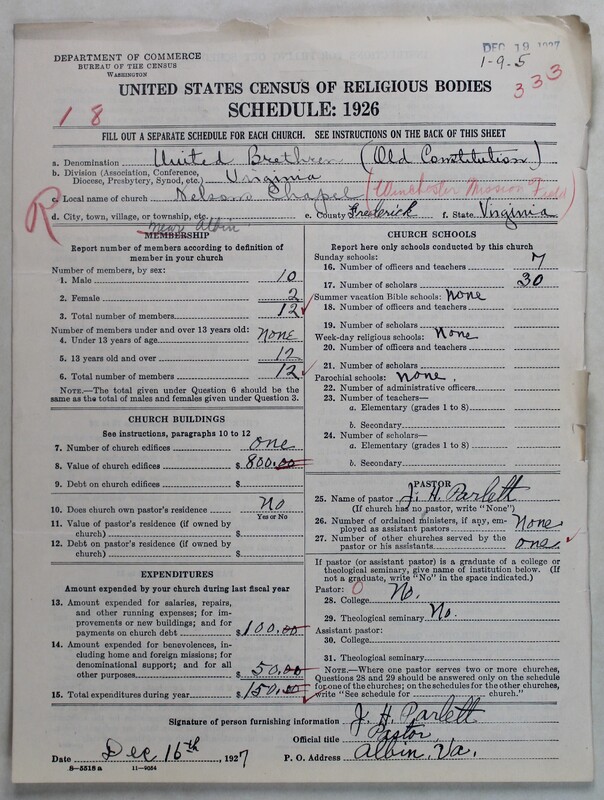 DEC 19 1927
1-9-5
333
DEPARTMENT OF COMMERCE
BUREAU OF THE CENSUS
WASHINGTON
UNITED STATES CENSUS OF RELIGIOUS BODIES
SCHEDULE: 1926
1 8
FILL OUT A SEPARATE SCHEDULE FOR EACH CHURCH. SEE INSTRUCTIONS ON THE BACK OF THIS SHEET
a. Denomination United Brethren (Old Constitution)
b. Division (Association, Conference, Diocese, Presbytery, Synod, etc.) Virginia
c. Local name of church Nelsons Chapel (Winchester Mission Field)
R
d. City, town, village, or township, etc. near Albin e. County Frederick f. State Virginia
MEMBERSHIP
Report number of members according to definition of
member in your church
Number of members, by sex:
1. Male 10
2. Female 2
3. Total number of members 12
Number of members under and over 13 years old:
4. Under 13 years of age None
5. 13 years old and over 12
6. Total number of members 12
NOTE.—The total given under Question 6 should be the
same as the total of males and females given under Question 3.
CHURCH BUILDINGS
See instructions, paragraphs 10 to 12
7. Number of church edifices one
8. Value of church edifices $ 800.00
9. Debt on church edifices $
10. Does church own pastor's residence No
Yes or No
11. Value of pastor's residence (if owned by
church) $
12. Debt on pastor's residence (if owned by
church) $
EXPENDITURES
Amount expended by your church during last fiscal year
13. Amount expended for salaries, repairs,
and other running expenses; for im-
provements or new buildings; and for
payments on church debt $ 100.00
14. Amount expended for benevolences,
including home and foreign missions; for
denominational support; and for all
other purposes $ 50.00
15. Total expenditures during year $ 150.00
CHURCH SCHOOLS
Report here only schools conducted by this church
Sunday schools:
16. Number of officers and teachers 7
17. Number of scholars 30
Summer vacation Bible schools: None
18. Number of officers and teachers
19. Number of scholars
Week-day religious schools: None
20. Number of officers and teachers
21. Number of scholars
Parochial schools: None.
22. Number of administrative officers
23. Number of teachers—
a. Elementary (grades 1 to 8)
b. Secondary
24. Number of scholars—
a. Elementary (grades 1 to 8)
b. Secondary
PASTOR
25. Name of pastor J. H. Parlett
(If church has no pastor, write "None")
26. Number of ordained ministers, if any, em-
ployed as assistant pastors None
27. Number of other churches served by the
pastor or his assistants one
If pastor (or assistant pastor) is a graduate of a college or
theological seminary, give name of institution below. (If
not a graduate, write "No" in the space indicated.)
Pastor: 0
28. College No.
29. Theological seminary No.
Assistant pastor:
30. College
31. Theological seminary
NOTE.—Where one pastor serves two or more churches,
Questions 28 and 29 should be answered only on the schedule
for one of the churches; on the schedules for the other churches,
write "See schedule for church."
Signature of person furnishing information J. H. Parlett
Official title Pastor
Date Dec 16th, 1927 P. O. Address Albin, Va.
8-5518 a 11-9054